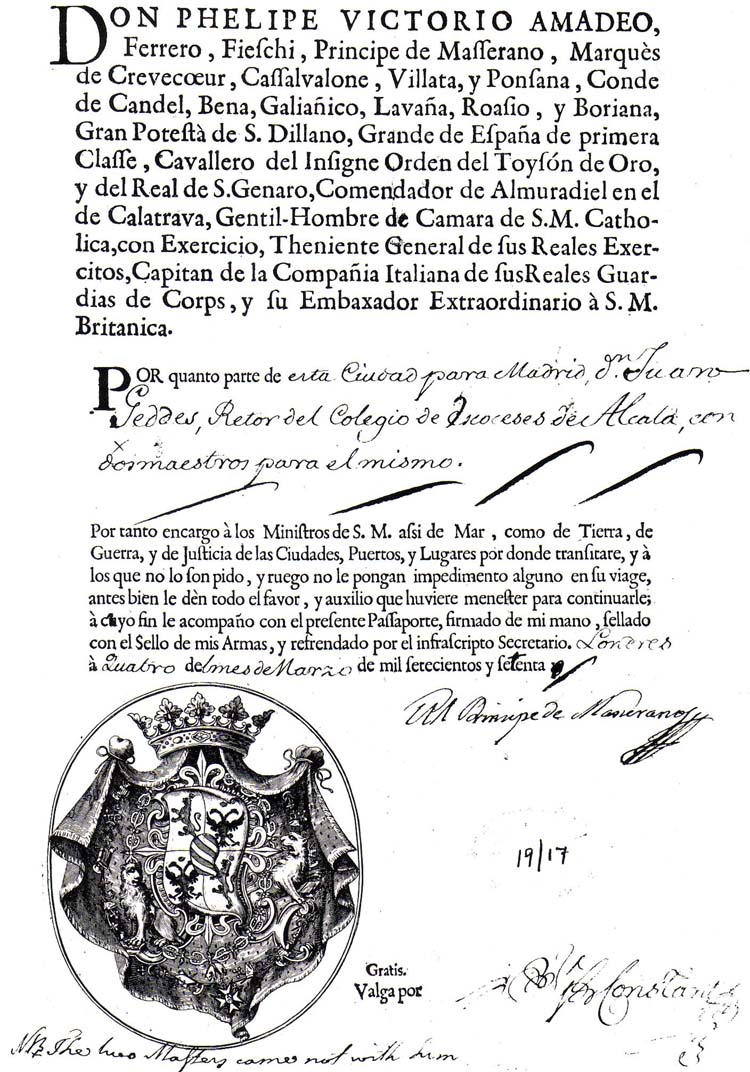 DON PHELIPE VICTORIO AMADEO,
Ferrero, Fieſchi, Principe de Maſſerano, Marquès
de Crevecœur, Caſſalvalone, Villata, y Ponſana, Conde
de Candel, Bena, Galiañico, Lavaña, Roaſio, y Boriana,
Gran Poteſtà de S. Dillano, Grande de Eſpaña de primera
Claſſe, Cavallero del Inſigne Orden del Toyſón de Oro,
y del Real de S. Genaro, Comendador de Almuradiel en el
de Calatrava, Gentil-Hombre de Camara de S. M. Catho-
lica, con Exercicio, Theniente General de ſus Reales Exer-
citos, Capitan de la Compañia Italiana de ſus Reales Guar-
dias de Corps, y ſu Embaxador Extraordinario à S. M.
Britanica.
POR quanto parte de esta Ciudad para Madrid, dn. Juan
Geddes, Retor del Colegio de Escoceses de Alcala, con
dos maestros para el mismo.
Por tanto encargo à los Miniſtros de S. M. aſsi de Mar, como de Tierra, de
Guerra, y de Juſticia de las Ciudades, Puertos, y Lugares por donde tranſitare, y à
los que no lo ſon pido, y ruego no le pongan impedimento alguno en ſu viage,
antes bien le dèn todo el favor, y auxilio que huviere meneſter para continuarle;
à cuyo fin le acompaño con el preſente Paſſaporte, firmado de mi mano, ſellado
con el Sello de mis Armas, y refrendado por el infraſcripto Secretario. Londres
à Quatro del mes de Marzo de mil ſetecientos y ſetenta
El Principe de Maserano
19/17
Gratis.
Valga por
NB. The two Masters came not with him